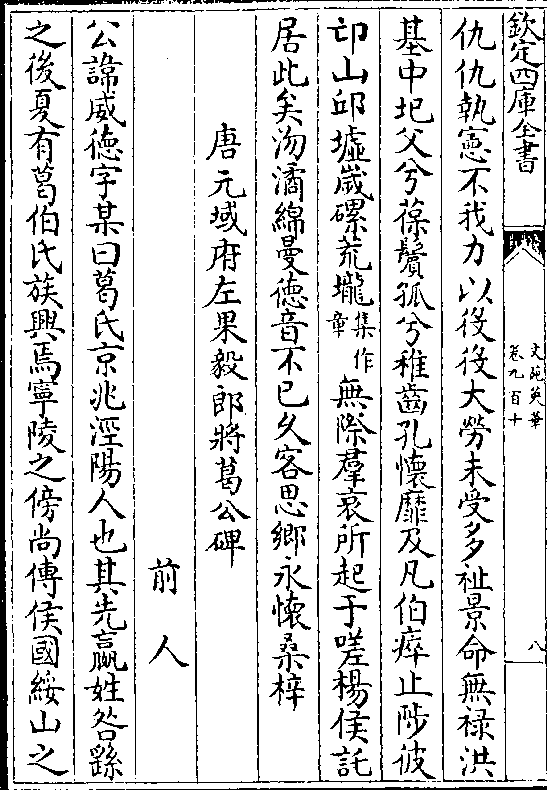 欽定四庫全書
文苑英華
卷九百十
八
仇仇執憲不我力以役役大勞未受多祉景命無禄洪
基中圯父兮葆鬢孤兮稚齒孔懷靡及凡伯瘁止陟彼
邙山邱墟嵗磥荒壠集作章無際羣哀所起于嗟楊侯託
居此矣沕潏綿曼徳音不已久客思鄉永懐桑梓
唐元城府左果毅郎將葛公碑
前人
公諱威徳字某曰葛氏京兆涇陽人也其先嬴姓咎繇
之後夏有葛伯氏族興焉寧陵之傍尚傳侯國綏山之